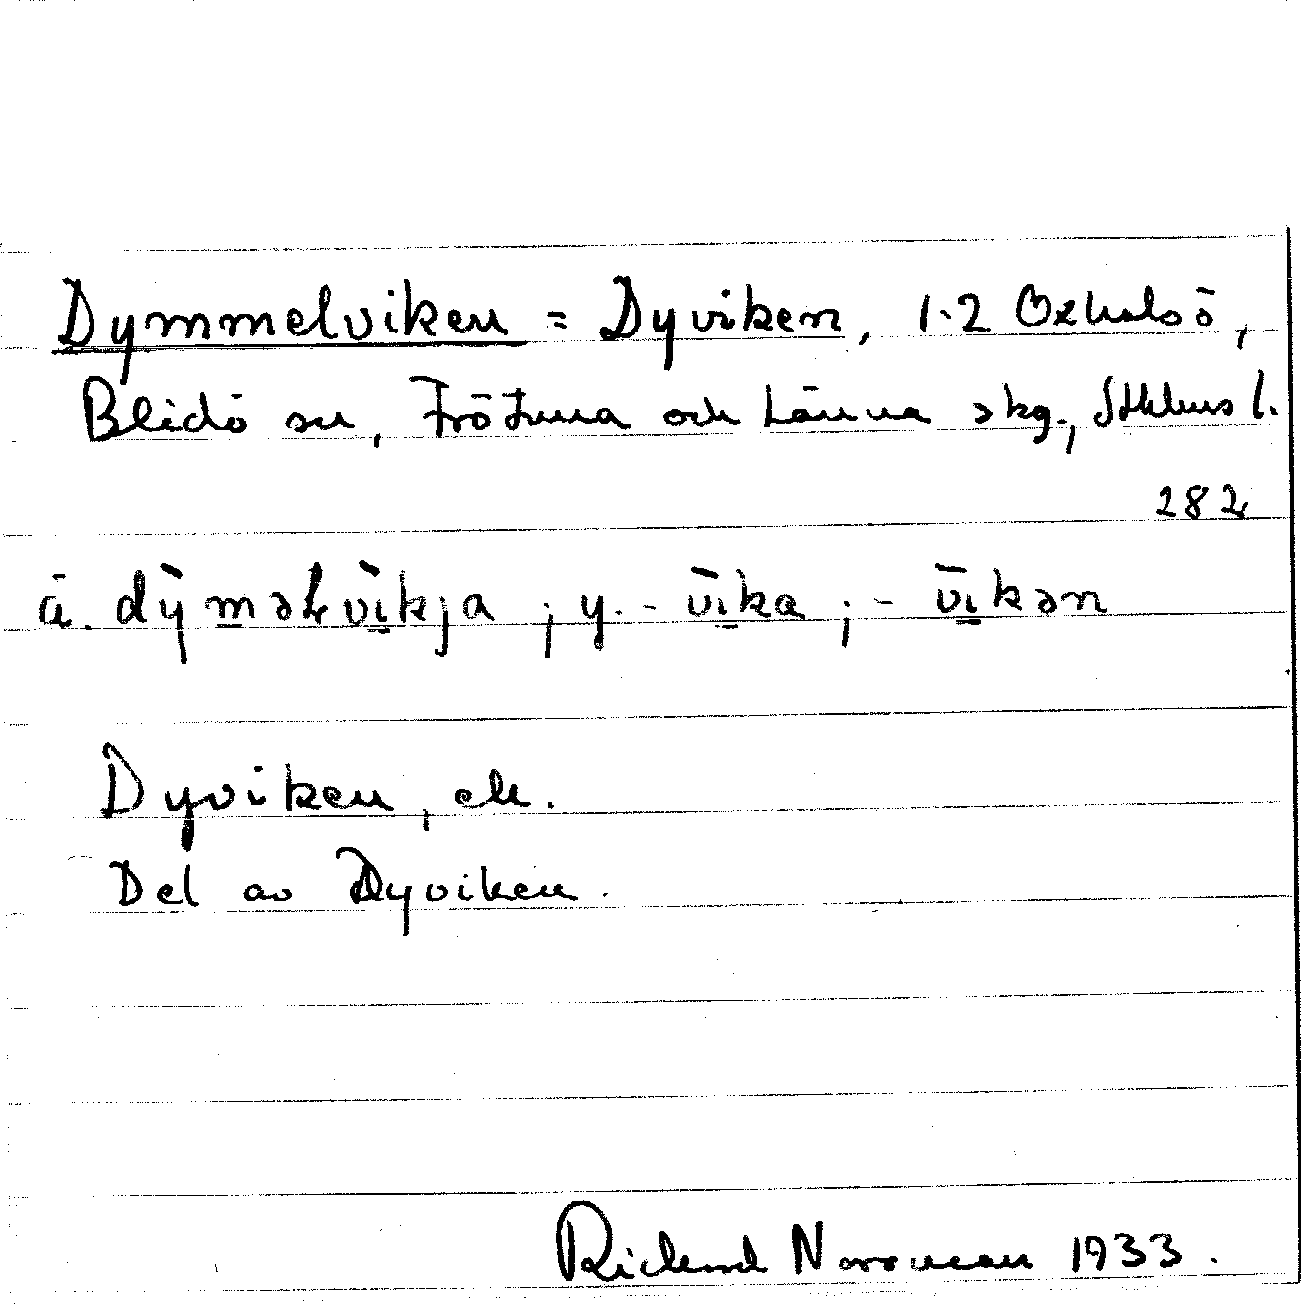 Dymmelviken = Dyviken, 1-2 Oxhalsö,
Blidö sn, Frötuna och Länna skg., Sthlms l.
282
ä. dỳməlvìkja ; y. - vìka ; - vīkən
Dyviken, ell.
Del av Dyviken.
Rickard Norrman 1933.